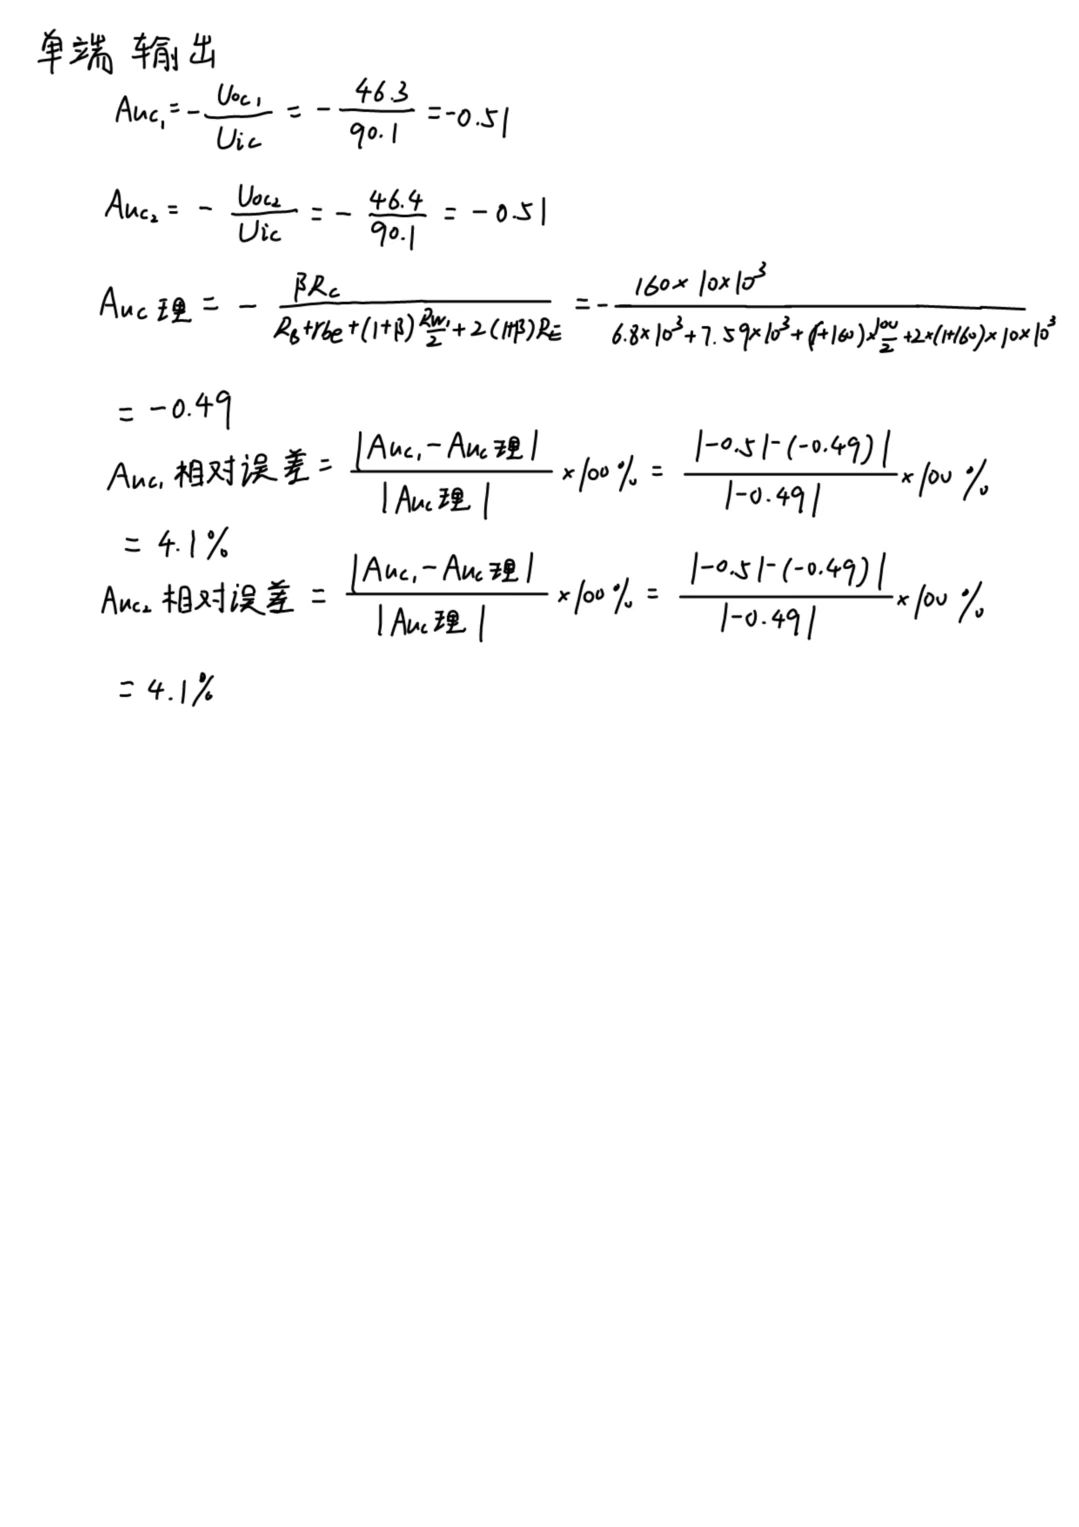 单端 输出
Auc₁ = - Uoc₁/Uic = - 46.3/90.1 = -0.51
Auc₂ = - Uoc₂/Uic = - 46.4/90.1 = -0.51
Auc理 = - βRc/(RB+rbe+(1+β)Rw₁/2+2(1+β)RE) = - 160×10×10³/(6.8×10³+7.59×10³+(1+160)×100/2+2×(1+160)×10×10³)
= -0.49
Auc₁相对误差 = |Auc₁-Auc理|/|Auc理| ×100% = |-0.51-(-0.49)|/|-0.49| ×100%
= 4.1%
Auc₂相对误差 = |Auc₁-Auc理|/|Auc理| ×100% = |-0.51-(-0.49)|/|-0.49| ×100%
= 4.1%